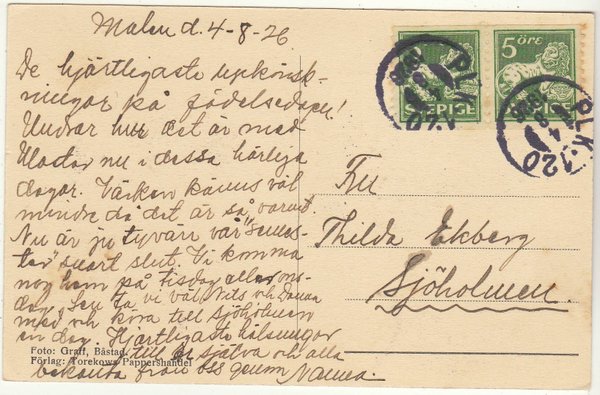 Malen d. 4-8-26
De hjärtligaste lyckönsk-
ningar på födelsedagen!
Undrar hur det är med
nu i dessa härliga
dagar. Värken känns väl
mindre då det är så varmt.
Nu är ju tyvärr vår "semes-
ter" snart slut. Vi komma
nog hem på tisdag eller ons-
dag, sen ta vi väl Nits och
med och köra till Sjöholmen
en dag. Hjärtligaste hälsningar
till er själva och alla
bekanta från oss genom Nanna.
Foto: Graff, Båstad.
Förlag: Torekows Pappershandel
SVERIGE
5 ÖRE
PLK.120
4 8
PLK.120
Fru
Thilda Ekberg
Sjöholmen.